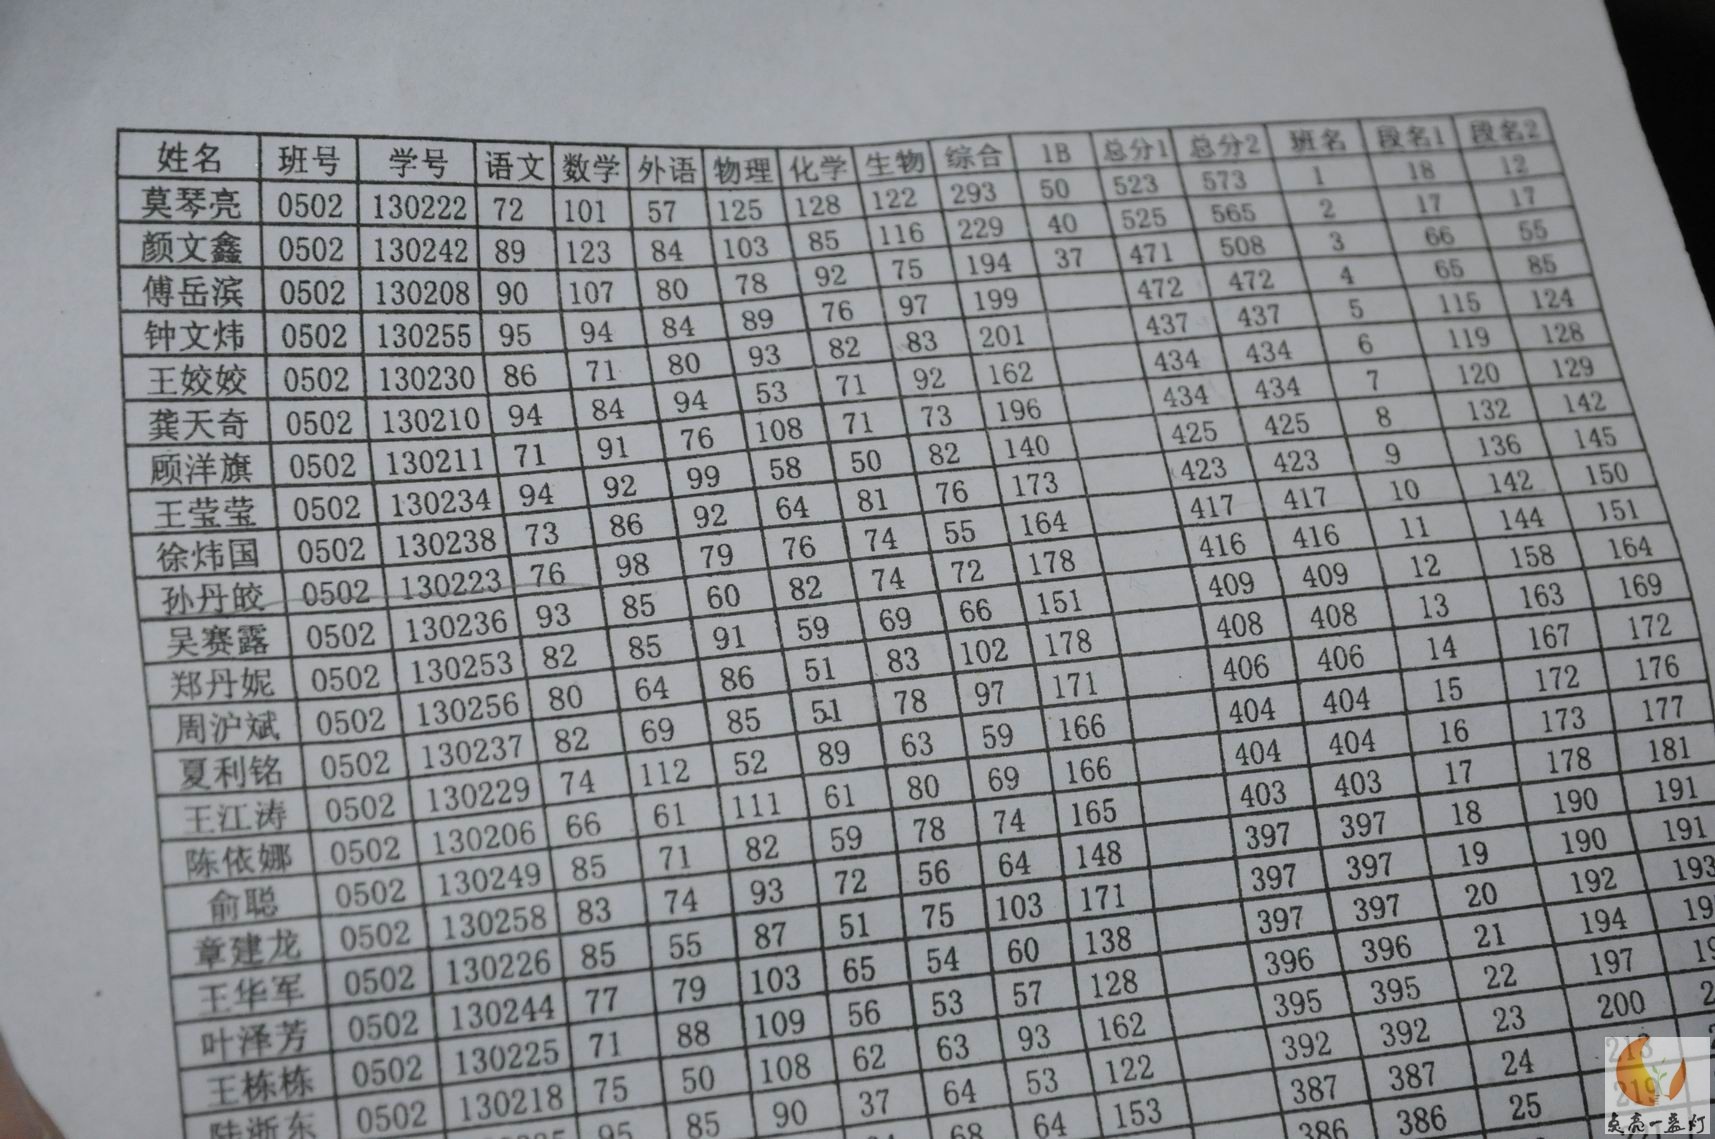 姓名 班号 学号 语文 数学 外语 物理 化学 生物 综合 1B 总分1 总分2 班名 段名1 段名2
莫琴亮 0502 130222 72 101 57 125 128 122 293 50 523 573 1 18 12
颜文鑫 0502 130242 89 123 84 103 85 116 229 40 525 565 2 17 17
傅岳滨 0502 130208 90 107 80 78 92 75 194 37 471 508 3 66 55
钟文炜 0502 130255 95 94 84 89 76 97 199 472 472 4 65 85
王姣姣 0502 130230 86 71 80 93 82 83 201 437 437 5 115 124
龚天奇 0502 130210 94 84 94 53 71 92 162 434 434 6 119 128
顾洋旗 0502 130211 71 91 76 108 71 73 196 434 434 7 120 129
王莹莹 0502 130234 94 92 99 58 50 82 140 425 425 8 132 142
徐炜国 0502 130238 73 86 92 64 81 76 173 423 423 9 136 145
孙丹皎 0502 130223 76 98 79 76 74 55 164 417 417 10 142 150
吴赛露 0502 130236 93 85 60 82 74 72 178 416 416 11 144 151
郑丹妮 0502 130253 82 85 91 59 69 66 151 409 409 12 158 164
周沪斌 0502 130256 80 64 86 51 83 102 178 408 408 13 163 169
夏利铭 0502 130237 82 69 85 51 78 97 171 406 406 14 167 172
王江涛 0502 130229 74 112 52 89 63 59 166 404 404 15 172 176
陈依娜 0502 130206 66 61 111 61 80 69 166 404 404 16 173 177
俞聪 0502 130249 85 71 82 59 78 74 165 403 403 17 178 181
章建龙 0502 130258 83 74 93 72 56 64 148 397 397 18 190 191
王华军 0502 130226 85 55 87 51 75 103 171 397 397 19 190 191
叶泽芳 0502 130244 77 79 103 65 54 60 138 397 397 20 192 193
王栋栋 0502 130225 71 88 109 56 53 57 128 396 396 21 194
陆浙东 0502 130218 75 50 108 62 63 93 162 395 395 22 197
95 85 90 37 64 53 122 392 392 23 200
68 64 153 387 387 24
386 386 25
点亮一盏灯